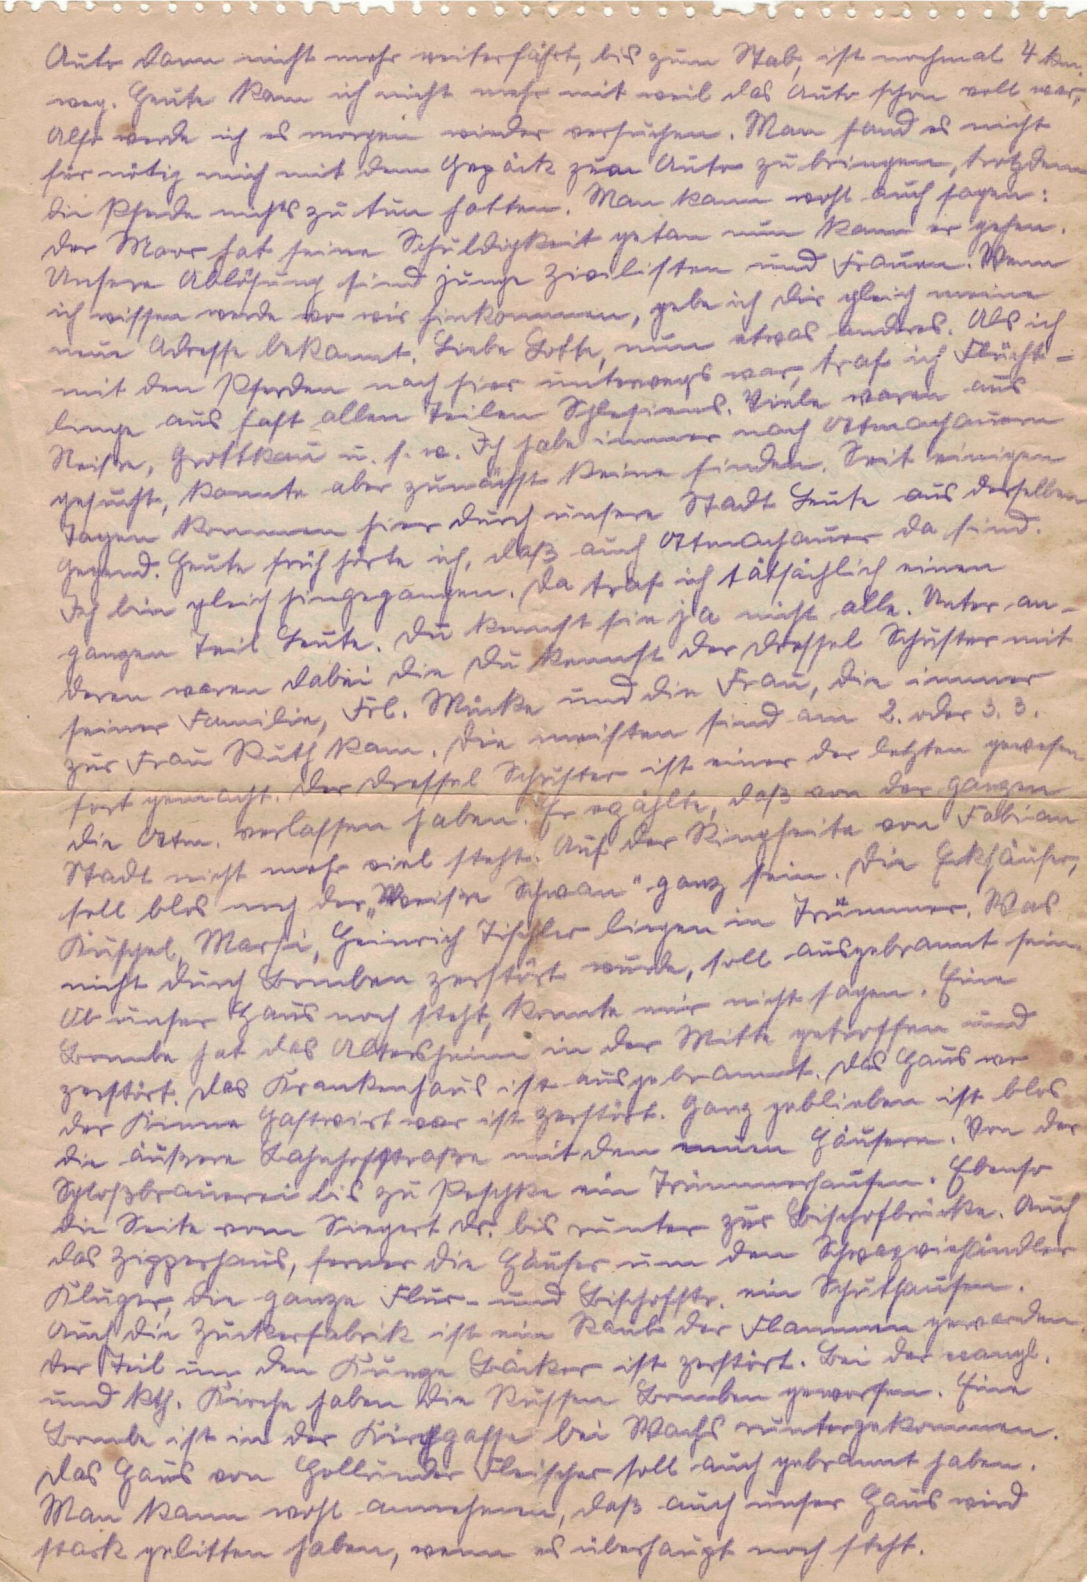 Auto dann nicht mehr weiterfährt, bis zum Stab, ist nochmal 4 km
weg. Heute kam ich nicht mehr mit weil das Auto schon voll war,
Also werde ich es morgen wieder versuchen. Man fand es nicht
für nötig mich mit dem Gepäck zum Auto zu bringen, trotzdem
die Pferde nichts zu tun hatten. Man kann wohl auch sagen:
der Moor hat seine Schuldigkeit getan nun kann er gehen.
Unsere Ablösung sind junge Zivilisten und Frauen. Wenn
ich wissen werde wo wir hinkommen, gebe ich dir gleich meine
neue Adresse bekannt. Liebe Lotte, nun etwas anderes. Als ich
mit den Pferden nach hier unterwegs war, traf ich Flücht-
linge aus fast allen Teilen Schlesiens. Viele waren aus
Neisse, Grottkau u. s. w. Ich habe immer nach Ottmachauern
gesucht, konnte aber zunächst keine finden. Seit einigen
Tagen kommen hier durch unsere Stadt Leute aus derselben
Gegend. Heute früh hörte ich, daß auch Ottmachauer da sind.
Ich bin gleich hingegangen. Da traf ich tatsächlich einen
ganzen Teil Leute. Du kennst sie ja nicht alle. Unter an-
deren waren dabei die Du kennst der Dressel Schuster mit
seiner Familie, Frl. Mücke und die Frau, die immer
zur Frau Ruth kam. Die meisten sind am 2. oder 3. 3.
fort gemacht. Der Dressel Schuster ist einer der letzten gewesen
die Ottm. verlassen haben. Er erzählte, daß von der ganzen
Stadt nicht mehr viel steht. Auf der Ringseite von Fabian
soll blos noch der „Weiße Schwan" ganz sein. Die Eckhäuser,
Kuschel, Marsi, Heinrich Tischler liegen in Trümmer. Was
nicht durch Bomben zerstört wurde, soll ausgebrannt sein
Ob unser Haus noch steht, konnte mir nicht sagen. Eine
Bombe hat das Altersheim in der Mitte getroffen und
zerstört. Das Krankenhaus ist ausgebrannt. Das Haus wo
der Kinne Gastwirt war ist zerstört. Ganz geblieben ist blos
die äußere Bahnhofstraße mit den neuen Häusern. Von der
Schloßbrauerei bis zu Peschke ein Trümmerhaufen. Ebenso
die Seite vom Siegert Dr. bis runter zur Bischofbrücke. Auch
das Zipperhaus, ferner die Häuser um den Schwarzviehändler
Kluger, die ganze Flur- und Bischofstr. ein Schuthaufen.
Auch die Zuckerfabrik ist ein Raub der Flammen geworden.
Der Teil um den Kunze Bäcker ist zerstört. Bei der evangl.
und kth. Kirche haben die Russen Bomben geworfen. Eine
Bombe ist in der Kirchgasse bei Wachs runtergekommen.
Das Haus von Hollunder Fleischer soll auch gebrannt haben.
Man kann wohl annehmen, daß auch unser Haus wird
stark gelitten haben, wenn es überhaupt noch steht.